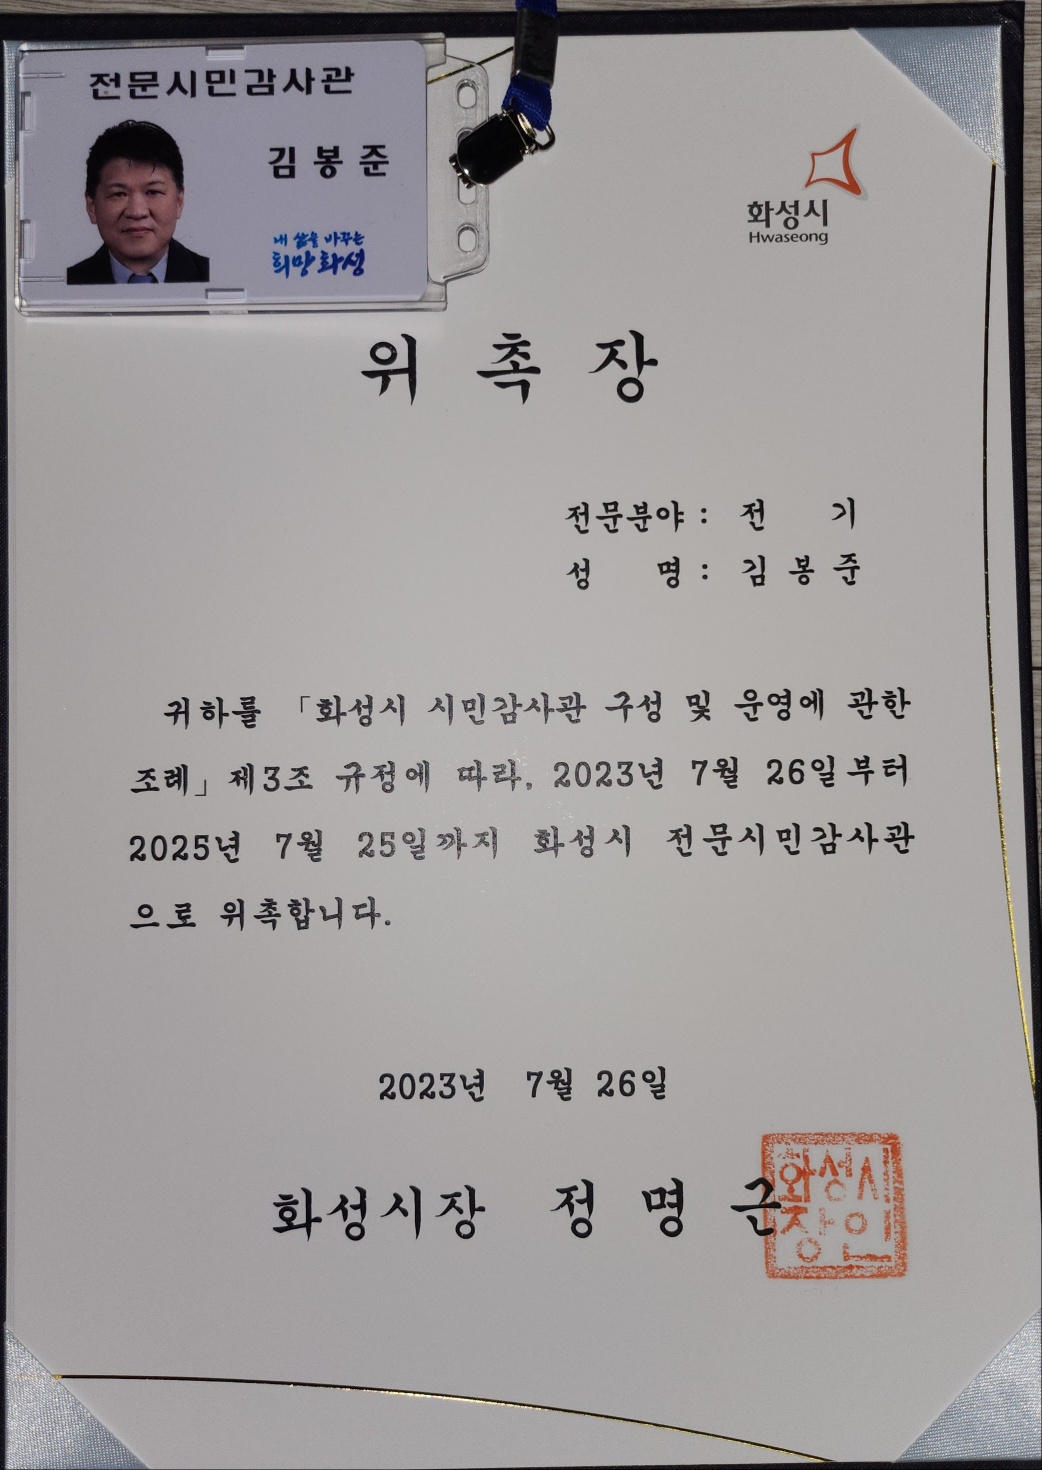 전문시민감사관
김 봉 준
내 삶을 바꾸는
희망화성
화성시
Hwaseong
위 촉 장
전문분야 : 전 기
성 명 : 김 봉 준
귀하를 「화성시 시민감사관 구성 및 운영에 관한
조례」제3조 규정에 따라, 2023년 7월 26일부터
2025년 7월 25일까지 화성시 전문시민감사관
으로 위촉합니다.
2023년 7월 26일
화성시장 정 명 근
화성시
장인